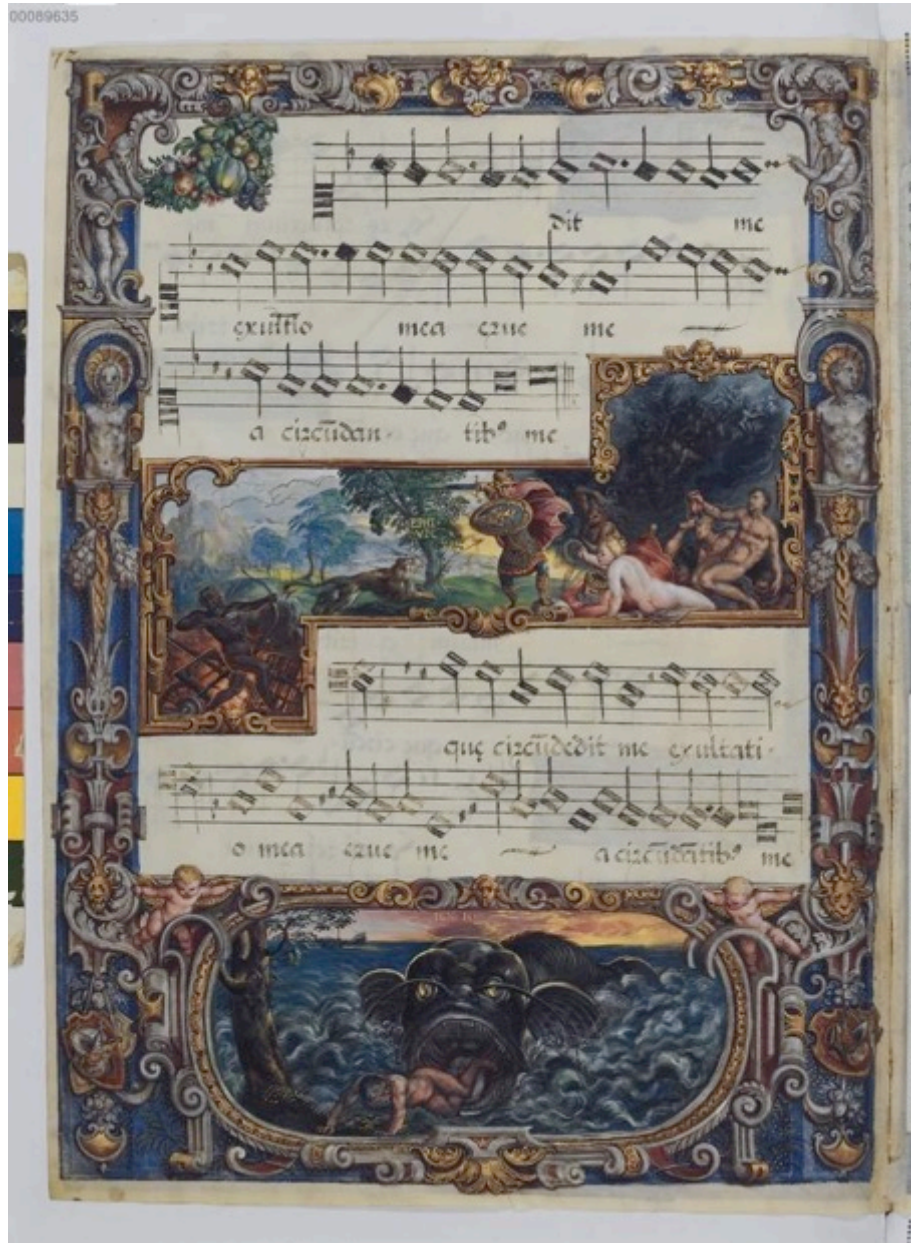 00089635
dit me
exultĩo mea erue me
a circũdan tibꝰ me
quę circũdedit me exultati-
o mea erue me a circũdãtibꝰ me